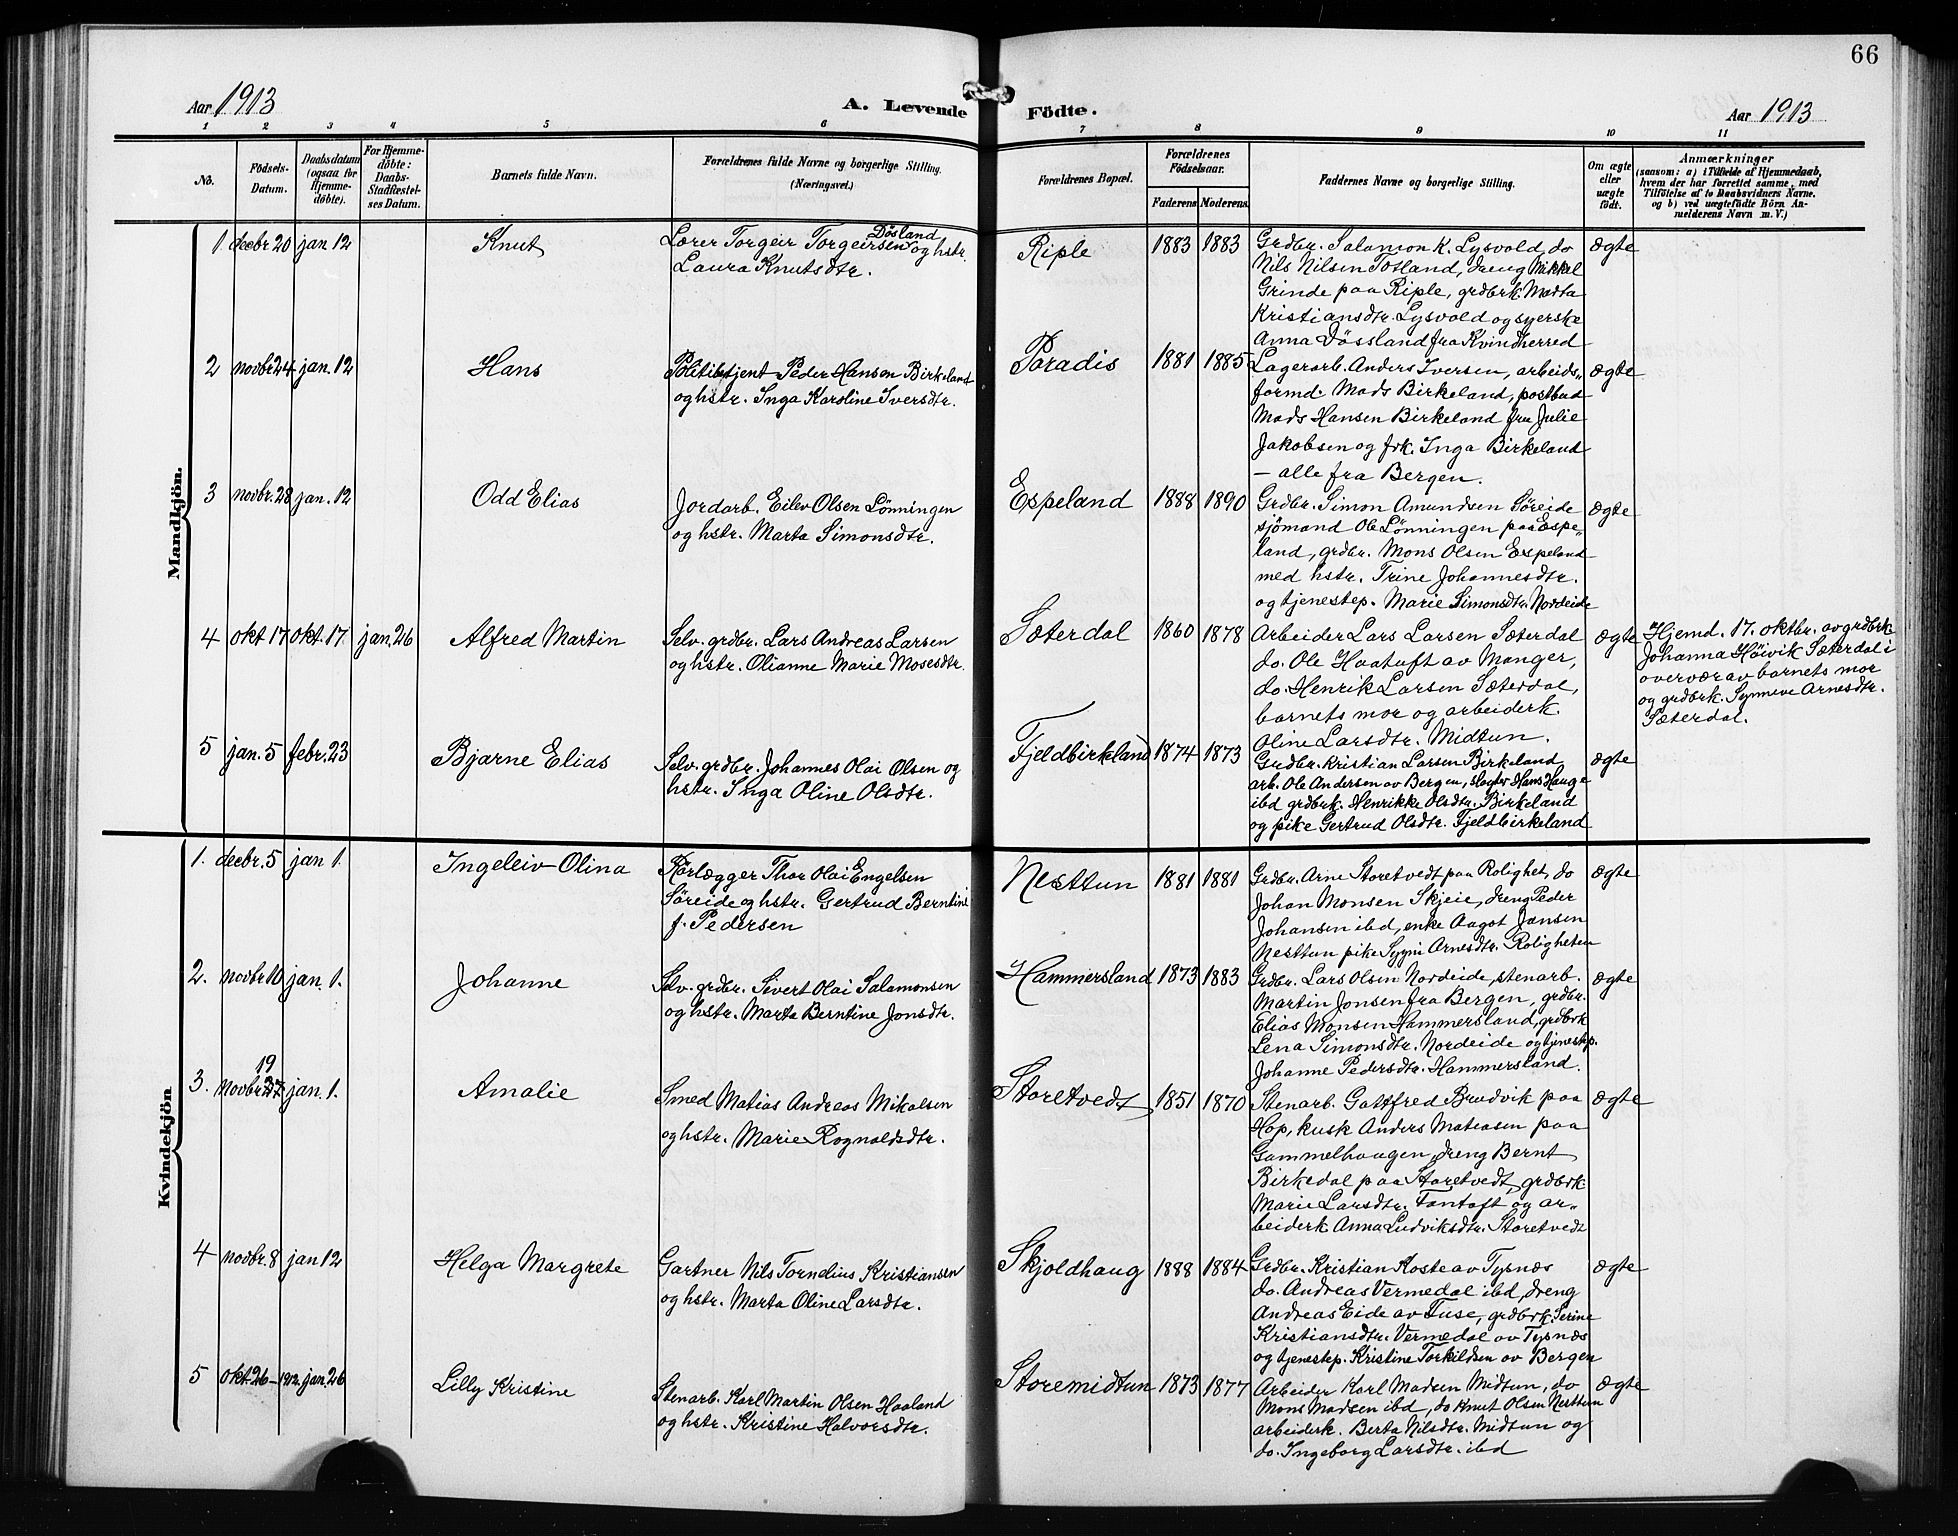 66
Aar 1913
A. Levende Födte.
Aar 1913
1 2 3 4 5 6 7 8 9 10 11
No.
Födsels-
Datum.
Daabsdatum
(ogsaa for
Hjemme-
döbte).
For Hjemme-
döbte:
Daabs-
Stadfæstel-
ses Datum.
Barnets fulde Navn.
Forældrenes fulde Navne og borgerlige Stilling.
(Næringsvei.)
Forældrenes Bopæl.
Forældrenes
Födselsaar.
Faderens
Moderens
Faddernes Navne og borgerlige Stilling.
Om ægte
eller
uægte
födt.
Anmærkninger
(saasom: a) i Tilfælde af Hjemmedaab,
hvem der har forrettet samme, med
Tilföielse af to Daabsvidners Navne.
og b) ved uægtefödte Börn An-
melderens Navn m. V.)
Mandkjön.
1. decbr 20 jan 12
Knut
Lærer Torgeir Torgeirsen Døsland og hstr.
Laura Knutsdtr.
Riple
1883 1883
Grdbr. Salamon K. Lysvold, do
Nils Nilsen Totland, dreng Mikkel
Grinde paa Riple, grdbrk. Marta
Kristiansdtr. Lysvold og syerske
Anna Døssland fra Kvindherred
ægte
2 novbr 24 jan. 12
Hans
Politibetjent Peder Hansen Birkeland
og hstr. Inga Karoline Iversdtr.
Paradis
1881 1885
Lagerarb. Anders Iversen, arbeids-
formd. Mads Birkeland, postbud
Mads Hansen Birkeland fru Julie
Jakobsen og frk. Inga Birkeland
— alle fra Bergen.
ægte
3 novbr. 28 jan. 12
Odd Elias
Jordarb. Eilev Olsen Lønningen
og hstr. Marta Simonsdtr.
Espeland
1888 1890
Grdbr. Simon Amundsen Søreide
sjömand Ole Lønningen paa Espe-
land, grdbr. Mons Olsen Espeland
med hstr. Trine Johannesdtr.
og tjenestep. Marie Simonsdtr. Nordeide
ægte
4 okt 17 okt. 17. jan. 26
Alfred Martin
Selv. grdbr. Lars Andreas Larsen
og hstr. Olianne Marie Mosesdtr.
Sæterdal
1860 1878
Arbeider Lars Larsen Sæterdal
do. Ole Haatuft av Manger,
do. Henrik Larsen Sæterdal,
barnets mor og arbeiderk.
Oline Larsdtr. Midtun.
ægte
Hjemd. 17. oktbr. av grdbrk
Johanna Høivik Sæterdal i
overvær av barnets mor
og grdbrk. Synneve Arnesdtr.
Sæterdal.
5 jan. 5 febr. 23
Bjarne Elias
Selv. grdbr. Johannes Olai Olsen og
hstr. Inga Oline Olsdtr.
Fjeldbirkeland
1874 1873
Grdbr. Kristian Larsen Birkeland
arb. Ole Andersen av Bergen, slagter Hans Hauge
ibd grdbrk. Henrikke Olsdtr. Birkeland
og pike Gertrud Olsdtr. Fjeldbirkeland
ægte
Kvindekjön
1. decbr. 5 jan 1.
Ingeleiv Olina
Rörlægger Thor Olai Engelsen
Søreide og hstr. Gertrud Berntine
f. Pedersen
Nesttun
1881 1881
Grdbr. Arne Storetvedt paa Rolighet, do
Johan Monsen Skjeie, dreng Peder
Johansen ibd, enke Aagot Jansen
Nesttun pike Arnesdtr. Roligheten
ægte
2. novbr 10 jan. 1.
Johanne
Selv. grdbr. Sivert Olai Salamonsen
og hstr. Marta Berntine Jonsdtr.
Hammersland
1873 1883
Grdbr. Lars Olsen Nordeide, stenarb.
Martin Jonsen fra Bergen, grdbr.
Elias Monsen Hammersland, grdbrk
Lena Simonsdtr. Nordeide og tjenestep.
Johanne Pedersdtr. Hammersland.
ægte
3. novbr. 19 jan. 1.
Amalie
Smed Matias Andreas Mikalsen
og hstr. Marie Rognaldsdtr.
Storetvedt
1851 1870
Stenarb. Gottfred Brudvik paa
Hop, kusk Anders Mateasen paa
Gammelhaugen, dreng Bernt
Birkedal paa Storetvedt, grdbrk
Marie Larsdtr. Fantoft og ar-
beiderk Anna Ludviksdtr. Storetvedt
ægte
4 novbr. 8 jan 12
Helga Margrete
Gartner Nils Tornelius Kristiansen
og hstr. Marta Oline Larsdtr.
Skjoldhaug
1888 1884
Grdbr. Kristian Koste av Tysnæs
do. Andreas Vermedal ibd, dreng
Andreas Eide av Fuse, grdbrk. Serine
Kristiansdtr. Vermedal av Tysnæs
og tjenestep. Kristine Torkildsen av Bergen
ægte
5 okt. 26-1912. jan. 26
Lilly Kristine
Stenarb. Karl Martin Olsen Haaland
og hstr. Kristine Halvorsdtr.
Storemidtun
1873 1877
Arbeider Karl Madsen Midtun, do
Mons Madsen ibd, do Knut Olsen Nesttun
arbeiderk. Berta Nilsdtr. Midtun og
do. Ingeborg Larsdtr. ibd
ægte